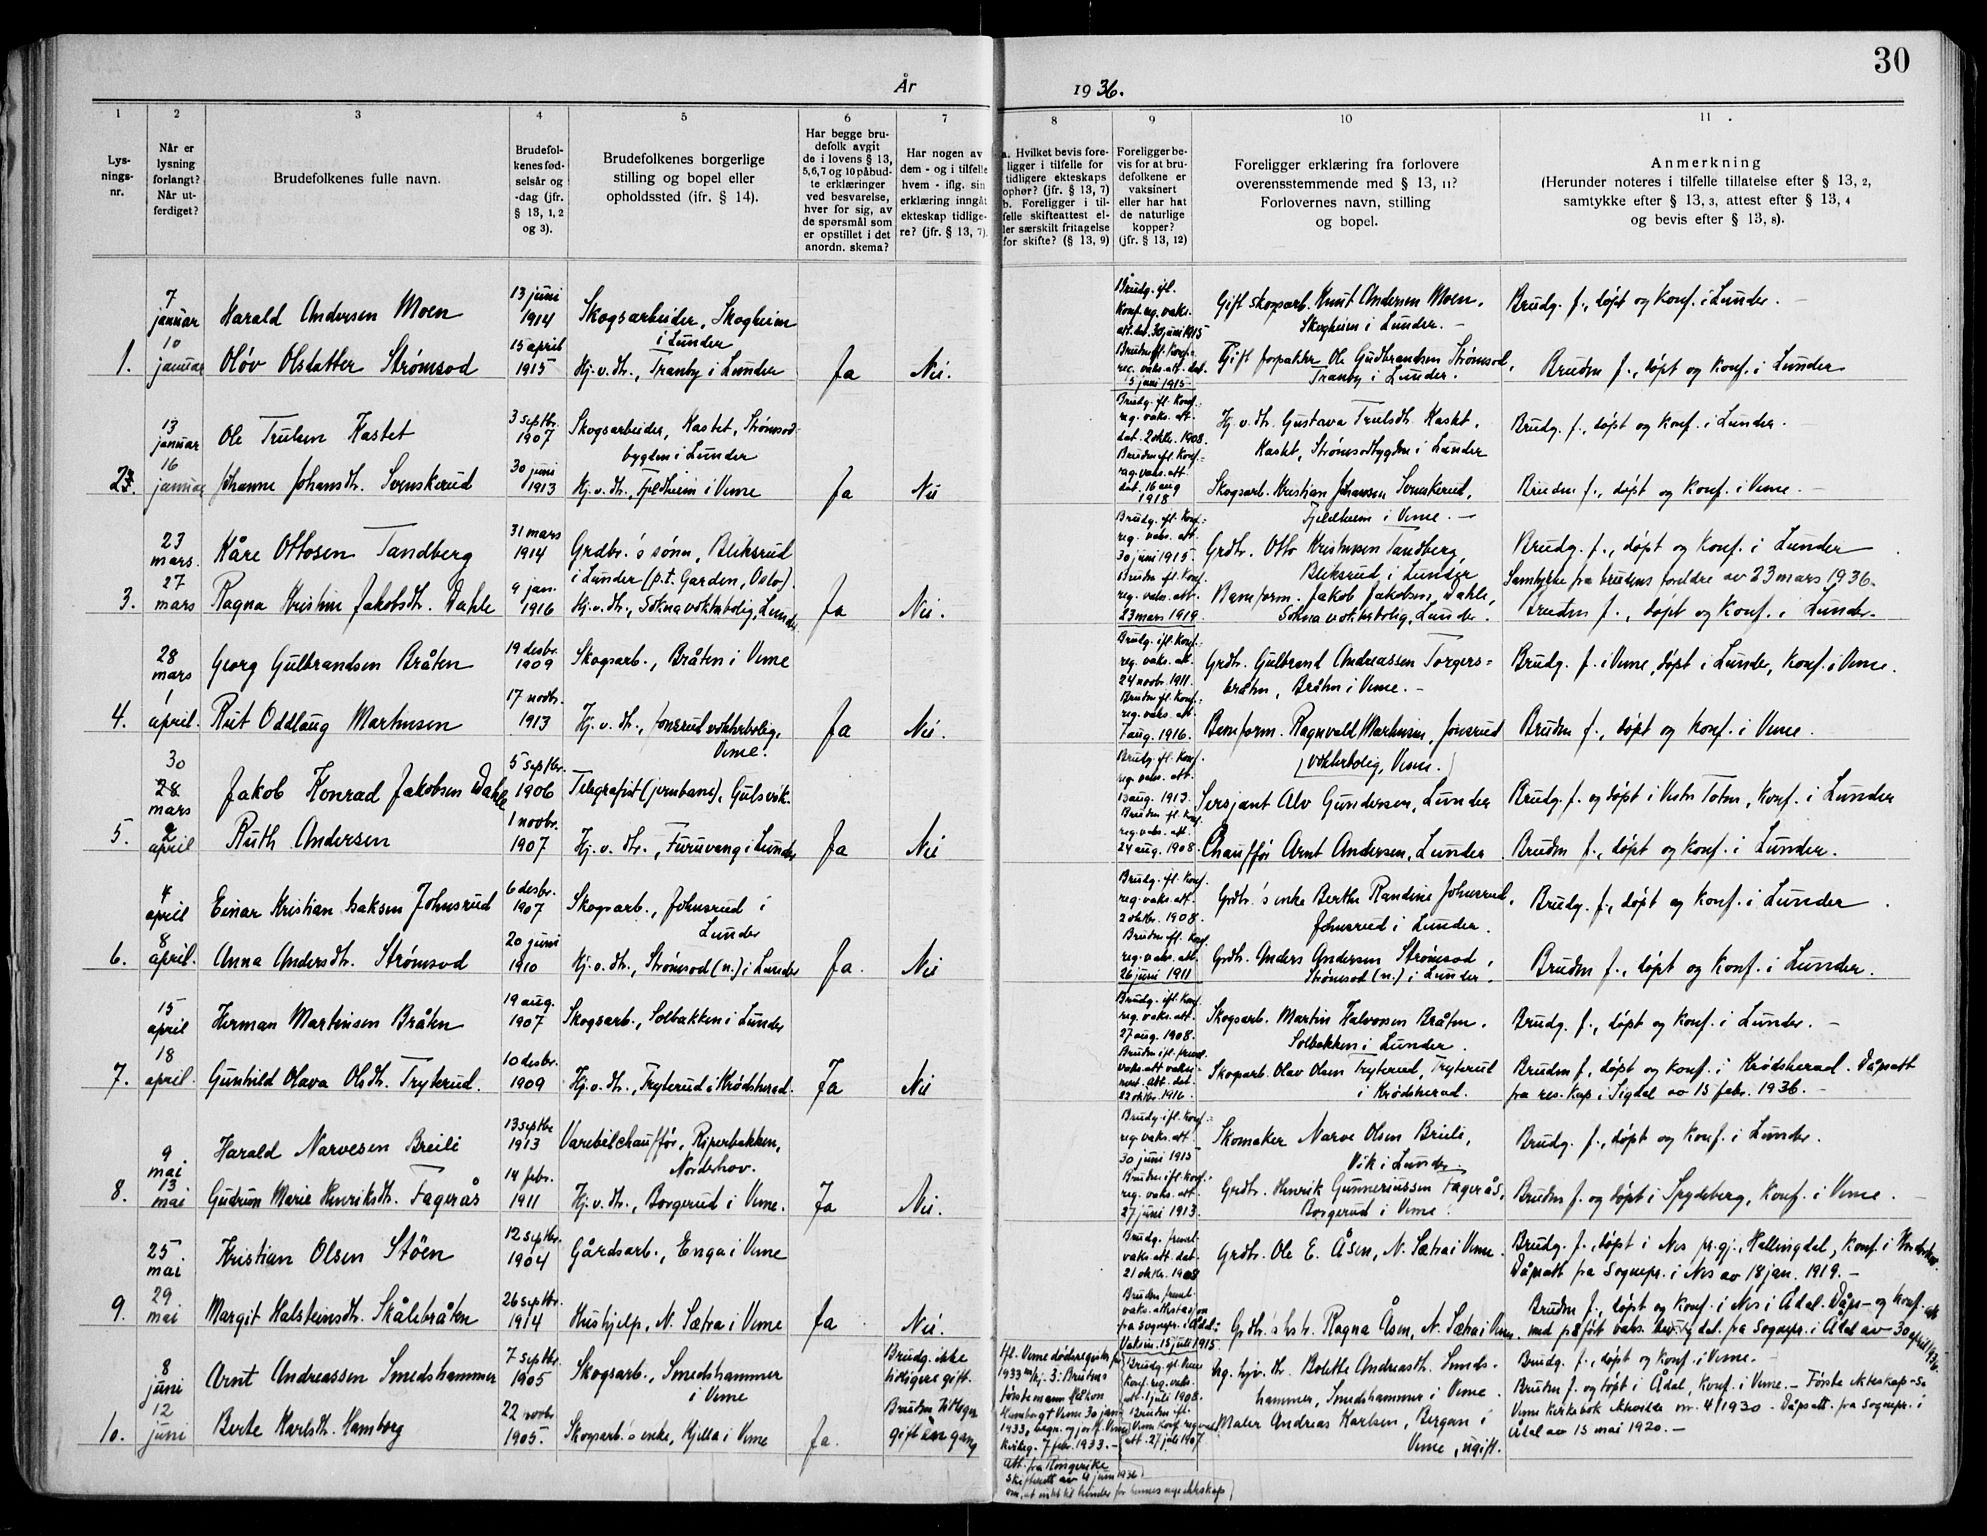 30
År 1936.
1 2 3 4 5 6 7 8 9 10 11
Lysningsnr.
Når er lysning forlangt? Når utferdiget?
Brudefolkenes fulle navn.
Brudefolkenes fødselsår og -dag (jfr. § 13, 1, 2 og 3).
Brudefolkenes borgerlige stilling og bopel eller opholdssted (jfr. § 14).
Har begge brudefolk avgit de i lovens § 13, 5, 6, 7 og 10 påbudte erklæringer ved besvarelse, hver for sig, av de spørsmål som er opstillet i det anordn. skema?
Har nogen av dem - og i tilfelle hvem - iflg. sin erklæring inngåt ekteskap tidligere? (jfr. § 13, 7).
a. Hvilket bevis foreligger i tilfelle for tidligere ekteskaps ophør? (jfr. § 13, 7)
b. Foreligger i tilfelle skifteattest eller særskilt fritagelse for skifte? (§ 13, 9)
Foreligger bevis for at brudefolkene er vaksinert eller har hat de naturlige kopper? (jfr. § 13, 12)
Foreligger erklæring fra forlovere overensstemmende med § 13, 11?
Forlovernes navn, stilling og bopel.
Anmerkning
(Herunder noteres i tilfelle tillatelse efter § 13, 2, samtykke efter § 13, 3, attest efter § 13, 4 og bevis efter § 13, 8).
7 januar Harald Andersen Moen 13 juni 1914 Skogsarbeider, Skogheim i Lunder
Brudg. ifl. Konf. reg. vaks. att. dat. 30 juni 1915 Gift skogsarb. Knut Andersen Moen, Skogheim i Lunder. Brudg. f., døpt og Konf. i Lunder.
1. 10 januar Olöv Olsdatter Strømsod 15 april 1915 Hj. v. dtr., Tranby i Lunder Ja Nei.
Gift forpakter Ole Gudbrandsen Strømsod, Tranby i Lunder. Bruden f., døpt og Konf. i Lunder
13 januar Ole Trulsen Kastet 3 septbr. 1907 Skogsarbeider, Kastet, Strømsodbygden i Lunder
dat. 2 oktbr. 1908. Hj. v. dtr. Gustava Trulsdtr. Kastet, Kastet, Strømsodbygden i Lunder Brudg. f., døpt og Konf. i Lunder.
2. 16 januar Johanne Johansdtr. Svenskerud 30 juni 1913 Hj. v. dtr., Fjeldheim i Veme Ja Nei
dat. 16 aug 1918 Skogsarb. Kristian Johansen Svenskerud, Fjeldheim i Veme. Bruden f., døpt og Konf. i Veme.
23 mars. Kåre Ottosen Tandberg 31 mars 1914 Grdbr.'s sønn, Bliksrud i Lunder (p.t. Garden, Oslo).
30 juni 1915 Grdbr. Otto Kristensen Tandberg, Bliksrud i Lunder Brudg. f., døpt og Konf. i Lunder
Samtykke fra brudens foreldre av 23 mars 1936.
3. 27 mars Ragna Kristine Jakobsdtr. Dahle 9 jan. 1916 Hj. v. dtr., Sokna vokterbolig, Lunder Ja Nei.
23 mars 1919 Baneform. Jakob Jakobsen Dahle, Sokna vokterbolig, Lunder. Bruden f., døpt og Konf. i Lunder.
28 mars Georg Gulbrandsen Bråten 19 desbr. 1909 Skogsarb., Bråten i Veme
24 novbr. 1911. Grdbr. Gulbrand Andreassen Torgersbråten, Bråten i Veme. Brudg. f. i Veme, døpt i Lunder, Konf. i Veme.
4. 1 april. Rut Oddlaug Martinsen 17 novbr. 1913 Hj. v. dtr., Jonsrud vokterbolig, Veme. Ja Nei.
7 aug. 1916. Baneform. Ragnvald Martinsen, Jonsrud vokterbolig, Veme. Bruden f., døpt og Konf. i Veme.
30 28 mars Jakob Konrad Jakobsen Dahle 5 septbr. 1906 Telegrafist (jernbane), Gulsvik.
13 aug. 1913. Sersjant Alv Gundersen, Lunder Brudg. f. og døpt i Vestre Toten, Konf. i Lunder
5. 2 april Ruth Andersen 1 novbr. 1907 Hj. v. dtr., Furuvang i Lunder Ja Nei
24 aug. 1908. Chauffør Arnt Andersen, Lunder Bruden f., døpt og Konf. i Lunder.
4 april Einar Kristian Isaksen Johnsrud 6 desbr. 1907 Skogsarb., Johnsrud i Lunder
2 oktbr. 1908. Grdbr.'s enke Berthe Randine Johnsrud, Johnsrud i Lunder. Brudg. f., døpt og Konf. i Lunder
6. 8 april. Anna Andersdtr. Strømsod 20 juni 1910 Hj. v. dtr., Strømsod (n.) i Lunder Ja. Nei
26 juni 1911 Grdbr. Anders Andersen Strømsod, Strømsod (n.) i Lunder. Bruden f., døpt og Konf. i Lunder.
15 april Herman Martinsen Bråten 19 aug. 1907 Skogsarb., Solbakken i Lunder
27 aug. 1908. Skogsarb. Martin Halvorsen Bråten, Solbakken i Lunder. Brudg. f., døpt og Konf. i Lunder.
7. 18 april. Gunhild Olava Olsdtr. Tryterud. 10 desbr. 1909 Hj. v. dtr., Tryterud i Krødsherad. Ja Nei
22 oktbr. 1916. Skogsarb. Olav Olsen Tryterud, Tryterud i Krødsherad. Bruden f., døpt og Konf. i Krødsherad. Dåpsatt. fra res. Kap. i Sigdal av 15 febr. 1936.
9 mai Harald Narvesen Breili 13 septbr. 1913 Varebilchauffør, Riperbakken, Norderhov.
30 juni 1915 Skomaker Narve Olsen Breili, Vik i Lunder. Brudg. f., døpt og Konf. i Lunder.
8. 13 mai Gudrun Marie Henriksdtr. Fagerås 14 febr. 1911 Hj. v. dtr., Borgerud i Veme. Ja Nei.
27 juni 1913. Grdbr. Henrik Gunneriussen Fagerås, Borgerud i Veme. Bruden f. og døpt i Spydeberg, Konf. i Veme.
25 mai Kristian Olsen Stöen 12 septbr. 1904 Gårdsarb., Enga i Veme
21 oktbr. 1908 Grdbr. Ole E. Åsen, N. Sætra i Veme. Brudg. f., døpt i Nes pr.gj., Hallingdal, Konf. i Norderhov. Dåpsatt. fra Sognepr. i Nes av 18 jan. 1919.
9. 29 mai Margit Halsteinsdtr. Skålebråten 26 septbr. 1914 Hushjelp, N. Sætra i Veme Ja Nei.
Vaksin. 15 juli 1915. Grdbr.'s hstr. Ragna Åsen, N. Sætra i Veme. Bruden f., døpt og Konf. i Nes i Ådal. Dåps- og Konf. att. med påført vaks. fra Sognepr. i Ådal av 30 april 1936.
8 juni Arnt Andreassen Smedshammer 7 septbr. 1905 Skogsarb., Smedshammer i Veme Brudg. ikke tidligere gift.
Ifl. Veme dødsregister for 1933 m/kj. 3: Brudens første mann Håkon Hamborg † Veme 30 jan. 1933, begr. og jordf. Veme Kirkeg. 7 febr. 1933.
att. 1 juli 1908. Ug. hjv. dtr. Bolette Andreasdtr. Smedshammer, Smedshammer i Veme. Brudg. f., døpt og Konf. i Veme.
10. 12 juni Berte Karlsdtr. Hamborg 22 novbr. 1905. Skogsarb.'s enke, Kjella i Veme Ja. Bruden tidligere gift en gang
Att. fra Ringerike Skifterett av 4 juni 1936 om, at intet til hinder for hennes nye ekteskap
att. 27 juli 1907 Maler Andreas Karlsen, Bergan i Veme, ugift. Bruden f. og døpt i Ådal, Konf. i Veme. Første ekteskap se Veme Kirkebok nr. 4/1930. Dåpsatt. fra Sognepr. i Ådal av 15 mai 1920.